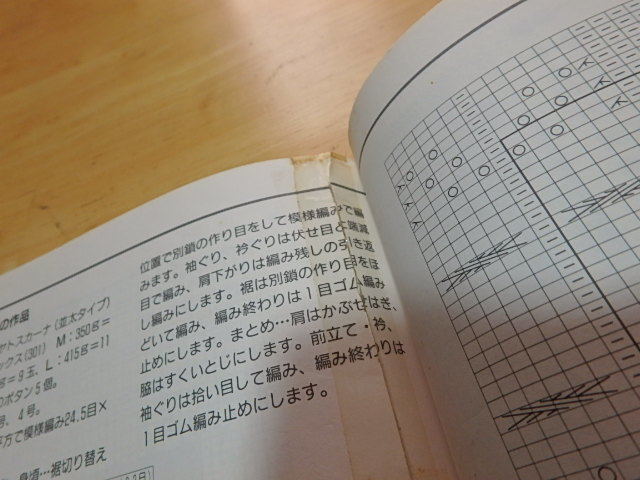 の作品
ヤトスカーナ（並太タイプ）
ックス(301) M：350g＝
g＝9玉、L：415g＝11
のボタン5個。
号、4号。
平方で模様編み24.5目×
身頃…裾切り替え
位置で別鎖の作り目をして模様編みで編
みます。袖ぐり、衿ぐりは伏せ目と端減
目で編み、肩下がりは編み残しの引き返
し編みにします。裾は別鎖の作り目をほ
どいて編み、編み終わりは1目ゴム編み
止めにします。まとめ…肩はかぶせはぎ、
脇はすくいとじにします。前立て・衿、
袖ぐりは拾い目して編み、編み終わりは
1目ゴム編み止めにします。